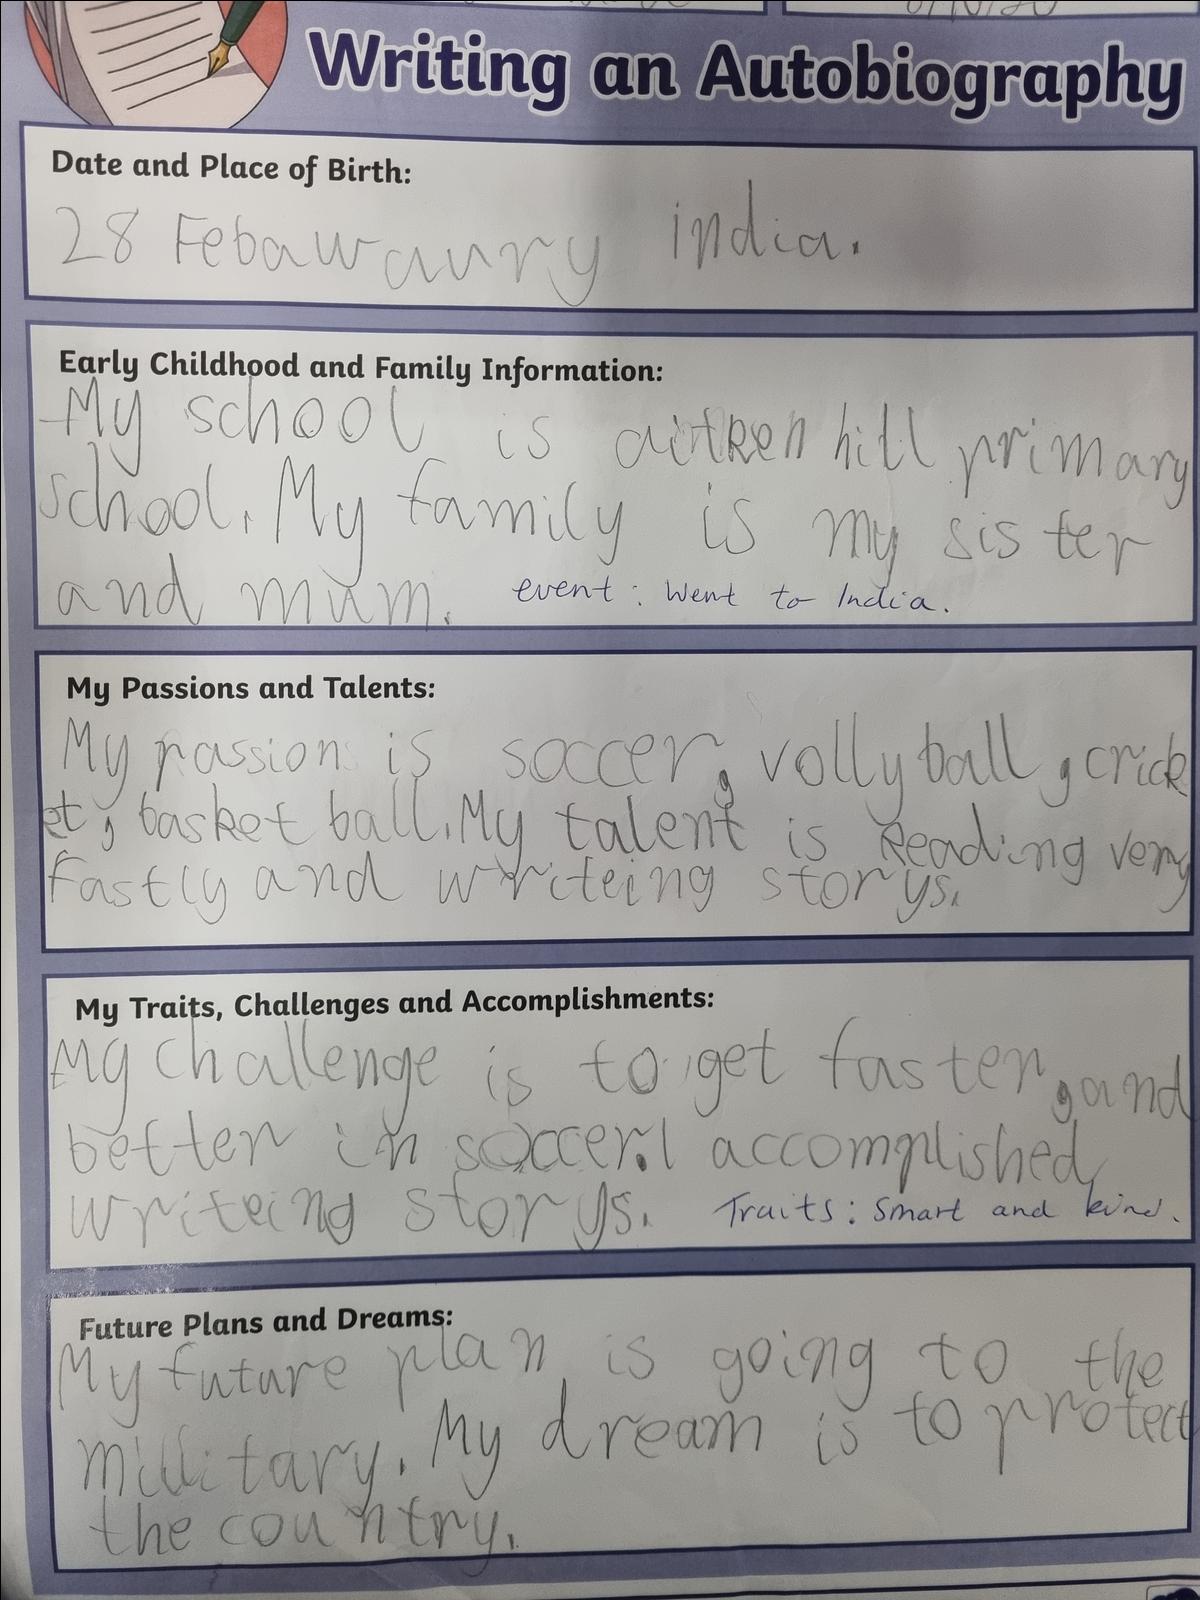 Writing an Autobiography
Date and Place of Birth:
28 Febawaury india.
Early Childhood and Family Information:
My school is aitken hill primary
school. My family is my sister
and mum. event: Went to India.
My Passions and Talents:
My passion is soccer, vollyball, crick
et, basket ball. My talent is Reading very
fastly and writeing storys.
My Traits, Challenges and Accomplishments:
My challenge is to get faster, and
better in soccer. I accomplished
writeing storys. Traits: Smart and kind.
Future Plans and Dreams:
My future plan is going to the
millitary. My dream is to protect
the country.